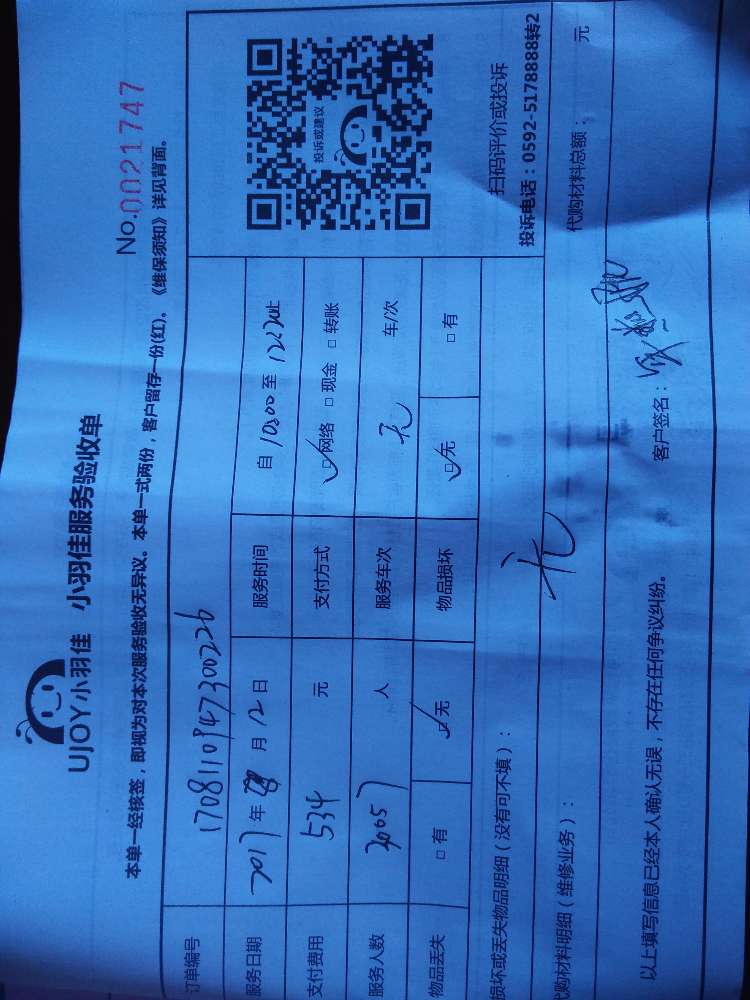 UJOY小羽佳 小羽佳服务验收单
No.0021747
本单一经核签，即视为对本次服务验收无异议。本单一式两份，客户留存一份(红)。《维保须知》详见背面。
订单编号 1708110947300226
服务日期 2017年 8月12日 服务时间 自10:00至12:20止
支付费用 534 元 支付方式 ☑网络 □现金 □转账
服务人数 人 服务车次 无 车/次
物品丢失 □有 ☑无 物品损坏 ☑无 □有
投诉或建议
扫码评价或投诉
投诉电话：0592-5178888转2
损坏或丢失物品明细（没有可不填）：
代购材料明细（维修业务）： 无 代购材料总额： 元
以上填写信息已经本人确认无误，不存在任何争议纠纷。 客户签名：